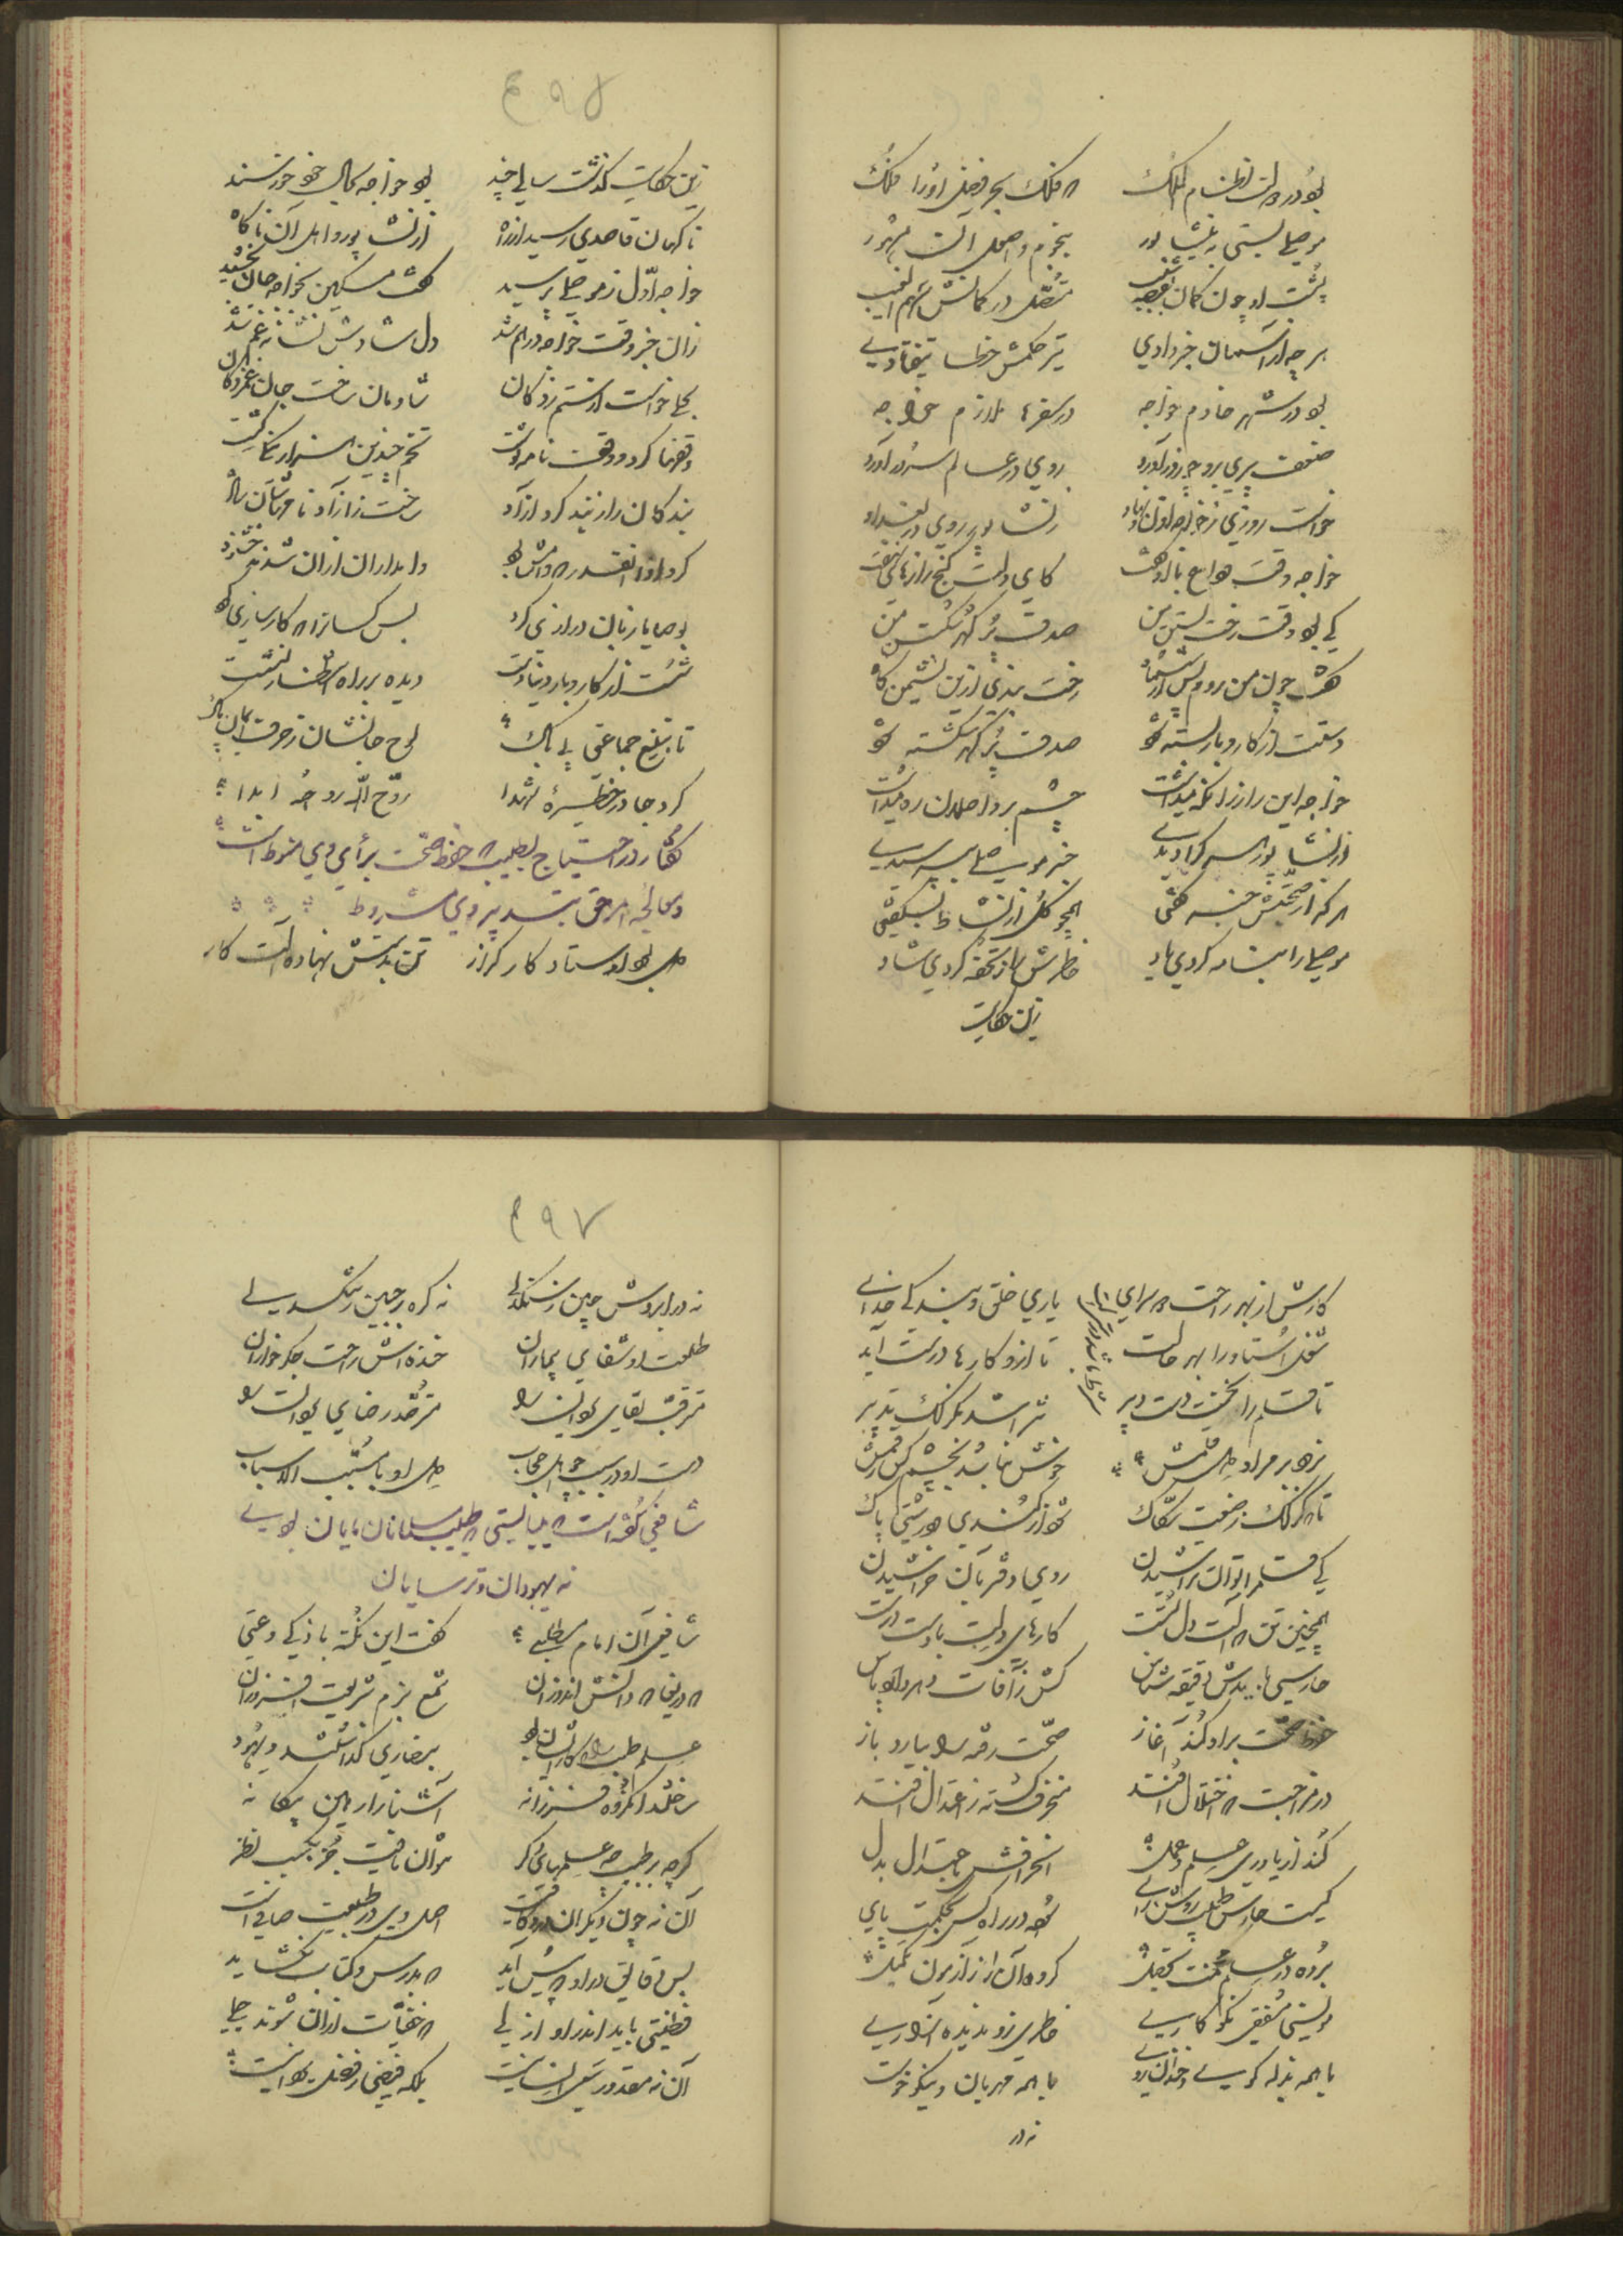 بود در دولت نظام الملک که فلک بحر فضل او را فلک
موصلی بستی به نیشابور بنجوم و اصول آن مشهور
پشت او چون کمان متصل در کمانش سهم الغیب
هر چه از آسمان خبر دادی تیر حکمش خطا نیفتادی
بود در شهر خادم خواجه در سفرها ملازم خواجه
ضعف پیری برو چو زور آورد روی در عالم سرور آورد
خواست روزی ز خواجه اذن و نهاد ز نشابور روی در بغداد
خواجه وقت وداع با او گفت کای دلت گنج رازهای نهفت
کی بود وقت رخت بستن من صدف پر گهر شکستن من
گفت چون من روم پس از شش ماه رخت بندی ازین نشیمن گاه
دستت از کار و بار بسته شود صدف پر گهر شکسته شود
خواجه این راز را نگه میداشت چشم بر واصلان ره میداشت
از نشابور هر که را دیدی خبر موصلی بپرسیدی
هر که از صحتش خبر گفتی همچو گل از نشاط بشکفتی
موصلی را بنامه کردی یاد خاطرش را ز تحفه کردی شاد
زین حکایت
۴۹۵
زین حکایت گذشت سالی چند بود خواجه بحال خود خرسند
ناگهان قاصدی رسید از راه از نشابور و اهل آن آگاه
خواجه اول ز موصلی پرسید گفت مسکین بخواجه جان بخشید
زان خبر وقت خواجه درهم شد دل شادش نشانه غم شد
بحلی خواست از ستم زدگان شادمان ساخت جان غمزدگان
وقفها کرد و وقف نامه نوشت تخم چندین هزار نیکی کشت
بندگان را ز بند کرد آزاد
کرد ادا آنقدر که وامش بود وامداران ازان شدند خشنود
بوصایا زبان درازی کرد بس کسانرا که کارسازی کرد
شست از کار و بار دنیا دست دیده بر راه انتظار نشست
تا بتیغ جماعتی بی باک لوح جانشان ز حرف ایمان پاک
کرد جا در حظیرهٔ شهدا روّح الله روحه ابدا
گفتار در احتیاج بطبیب که حفظ صحت برأی وی منوط است
و معالجه امراض بتدبیر وی مشروط
دل بود اوستاد کار گزار تن بدستش نهاده آلت کار
کارش از بهر راحت دو سرای یاری خلق و بندگی خدای
شغل استاد را بهر حالت شرط باشد درستی آلت تا ازو کارها درست آید
تا قلم را نگیرد دست دبیر نتراشد بگزلک تدبیر
نزند بر مراد دل رقمش خوش نیاید بچشم کس رقمش
تا که گزلک ز صنعت حکاک نشود از کندی و درشتی پاک
کی قلم را توان تراشیدن روی دفتر بآن خراشیدن
همچنین تن که آلت دل تست کارهای دلت بدوست درست
حارسی بایدش دقیقه شناس کش ز آفات دهر دارد پاس
حفظ صحت برو کند آغاز صحت رفته را بیارد باز
در مزاجت که اختلال افتد منحرف گشته ز اعتدال افتد
کند از یاوری علم و عمل انحرافش باعتدال بدل
کیست حارس طبیب روشن رای بوده در راه کس بحکمت پای
برده در علم محنت تحصیل کرده آن را ز آزمون تکمیل
مونسی مشفقی نکو کاری خاطری زو ندیده آزاری
با همه بذله گوی و خندان روی با همه مهربان و نیکو خوی
نه در
۴۹۷
نه در ابروش چین ز تنگدلی نه گره بر جبین ز سنگدلی
طلعت او شفای بیماران خنده اش راحت جگر خواران
مترقب لقای یزدان را مترصد رضای یزدان را
دست او در سبب چو اهل حجاب دل او با مسبب الاسباب
شافعی گفته است که می بایستی که طبیب مسلمانان مسلمانان بودی
نه یهودان و ترسایان
شافعی آن امام مطلبی گفت این نکته با ذکی و غبی
که دریغا که دانش اندوزان شمع بزم شریعت افروزان
علم طب را که کارشان بود بنصاری گذاشتند و یهود
ساختند آن گروه فرزانه آشنا را رهین بیگانه
گرچه بر طب چو علمهای دگر نتوان یافت جز بکسب ظفر
آن نه چون دیگران درو کافیست اصل وی در طبیعت صافیست
بس دقایق در او که پیش آید که بدرس و کتاب نگشاید
فطنتی باید اندر او ازلی که خفیات ازان شوند جلی
آن نه مقدور سعی انسانیست بلکه فیضی ز فضل یزدانیست